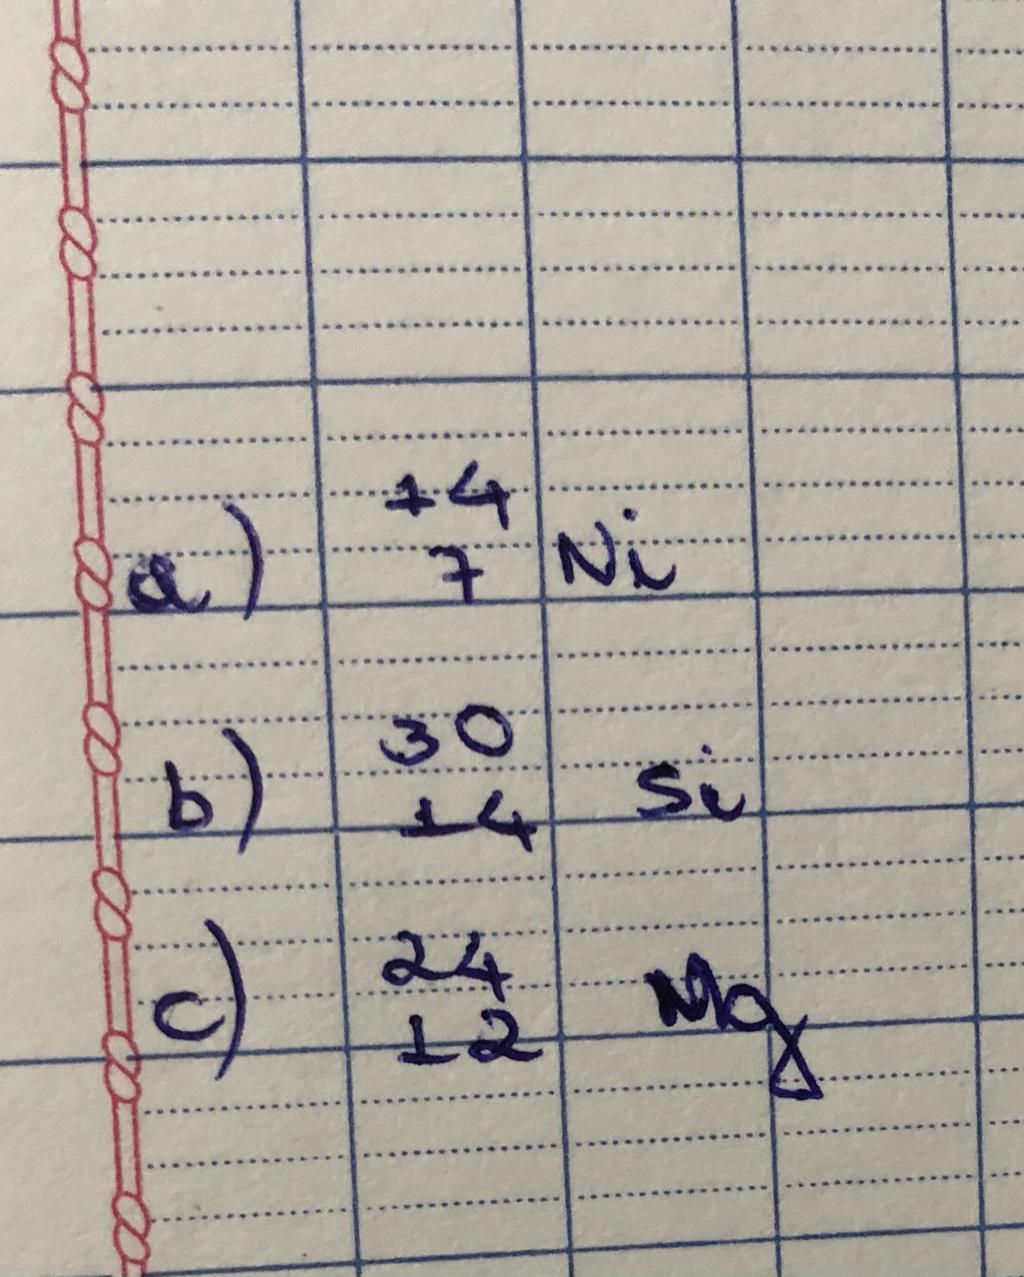 14
a) 7 Ni
30
b) 14 Si
24
c) 12 Mg